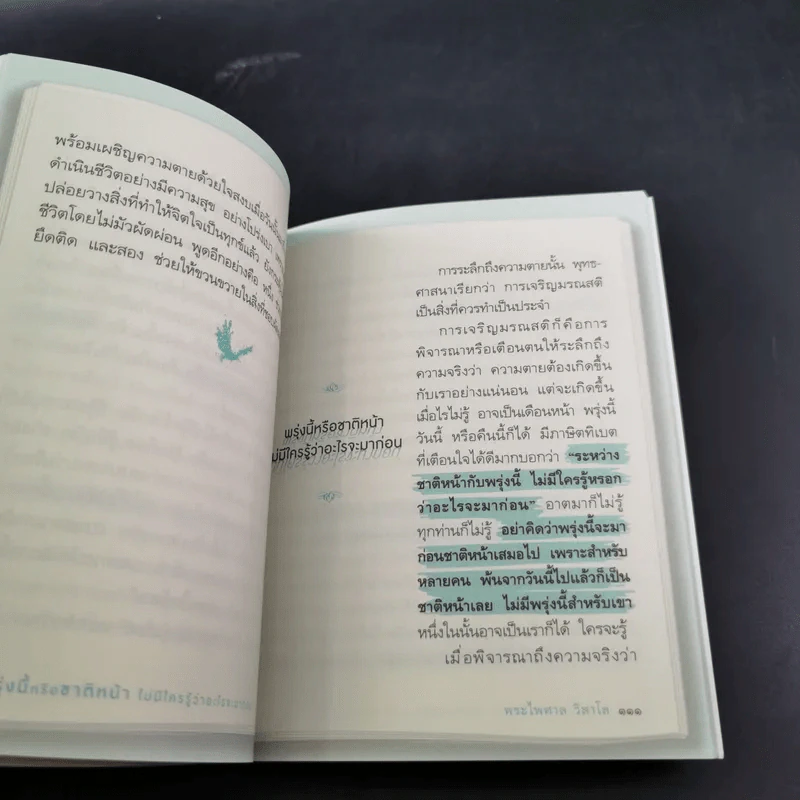 พร้อมเผชิญความตายด้วยใจสงบเมื่อวันนั้น
ดำเนินชีวิตอย่างมีความสุข อย่างโปร่งเบา
ปล่อยวางสิ่งที่ทำให้จิตใจเป็นทุกข์แล้ว
ชีวิตโดยไม่มัวผัดผ่อน พูดอีกอย่างคือ หนึ่ง
ยึดติด และสอง ช่วยให้ขวนขวายในสิ่งที่ชอบ
รุ่งนี้หรือชาติหน้า ไม่มีใครรู้ว่าอะไรจะมา
พรุ่งนี้หรือชาติหน้า
ไม่มีใครรู้ว่าอะไรจะมาก่อน
การระลึกถึงความตายนั้น พุทธ-
ศาสนาเรียกว่า การเจริญมรณสติ
เป็นสิ่งที่ควรทำเป็นประจำ
การเจริญมรณสติก็คือการ
พิจารณาหรือเตือนตนให้ระลึกถึง
ความจริงว่า ความตายต้องเกิดขึ้น
กับเราอย่างแน่นอน แต่จะเกิดขึ้น
เมื่อไรไม่รู้ อาจเป็นเดือนหน้า พรุ่งนี้
วันนี้ หรือคืนนี้ก็ได้ มีภาษิตทิเบต
ที่เตือนใจได้ดีมากบอกว่า “ระหว่าง
ชาติหน้ากับพรุ่งนี้ ไม่มีใครรู้หรอก
ว่าอะไรจะมาก่อน” อาตมาก็ไม่รู้
ทุกท่านก็ไม่รู้ อย่าคิดว่าพรุ่งนี้จะมา
ก่อนชาติหน้าเสมอไป เพราะสำหรับ
หลายคน พ้นจากวันนี้ไปแล้วก็เป็น
ชาติหน้าเลย ไม่มีพรุ่งนี้สำหรับเขา
หนึ่งในนั้นอาจเป็นเราก็ได้ ใครจะรู้
เมื่อพิจารณาถึงความจริงว่า
พระไพศาล วิสาโล ๑๑๑